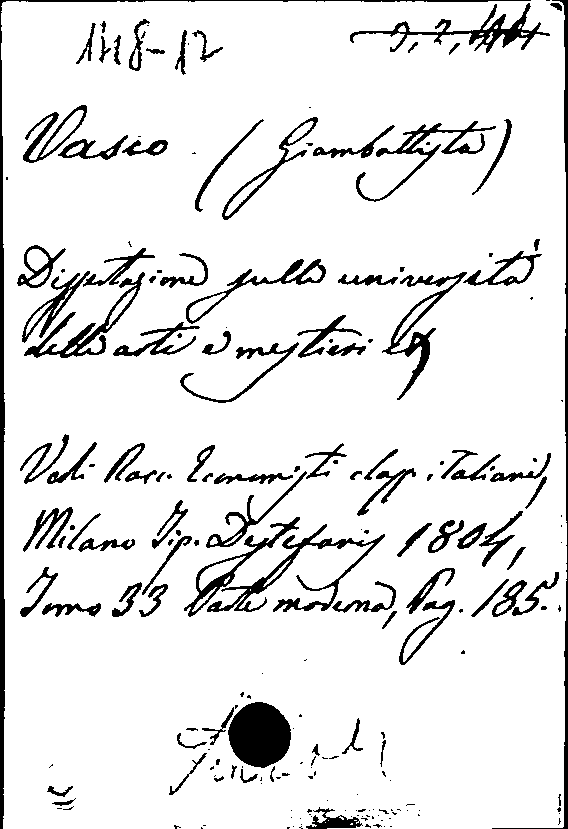 Vasco (Giambattista)
Dissertazione sulle università
delle arti e mestieri
Vedi Racc. Economisti class. italiani,
Milano Tip. Destefanis 1804,
Tomo 33 Parte moderna, Pag. 185.